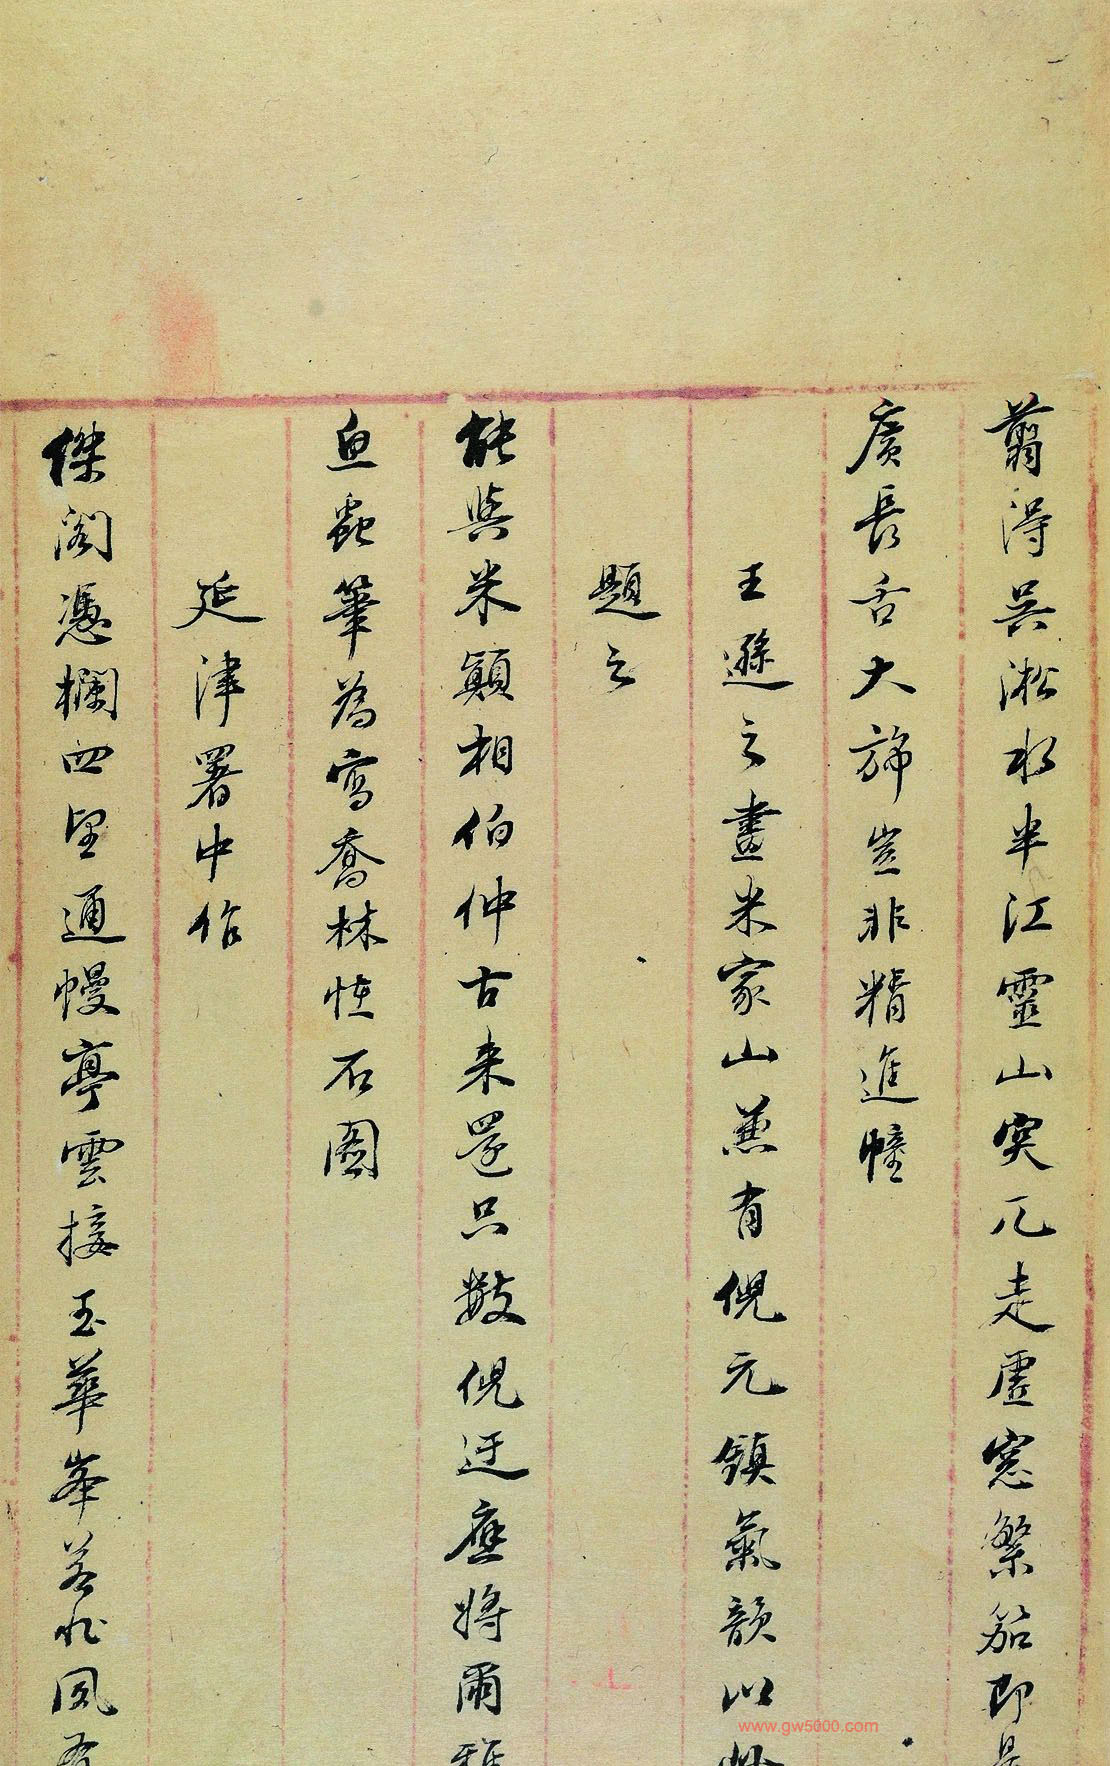 翦得吳淞水半江靈山突兀走虛窓繁笳即是
廣長舌大旆豈非精進幢
王遜之畫米家山兼有倪元鎮氣韻以
題之
能與米顛相伯仲古来還只數倪迂應將爾雅
蟲筆為寫喬林恠石圖
延津署中作
傑閣憑欄四望通幔亭雲接玉華峯若非風
www.gw5000.com